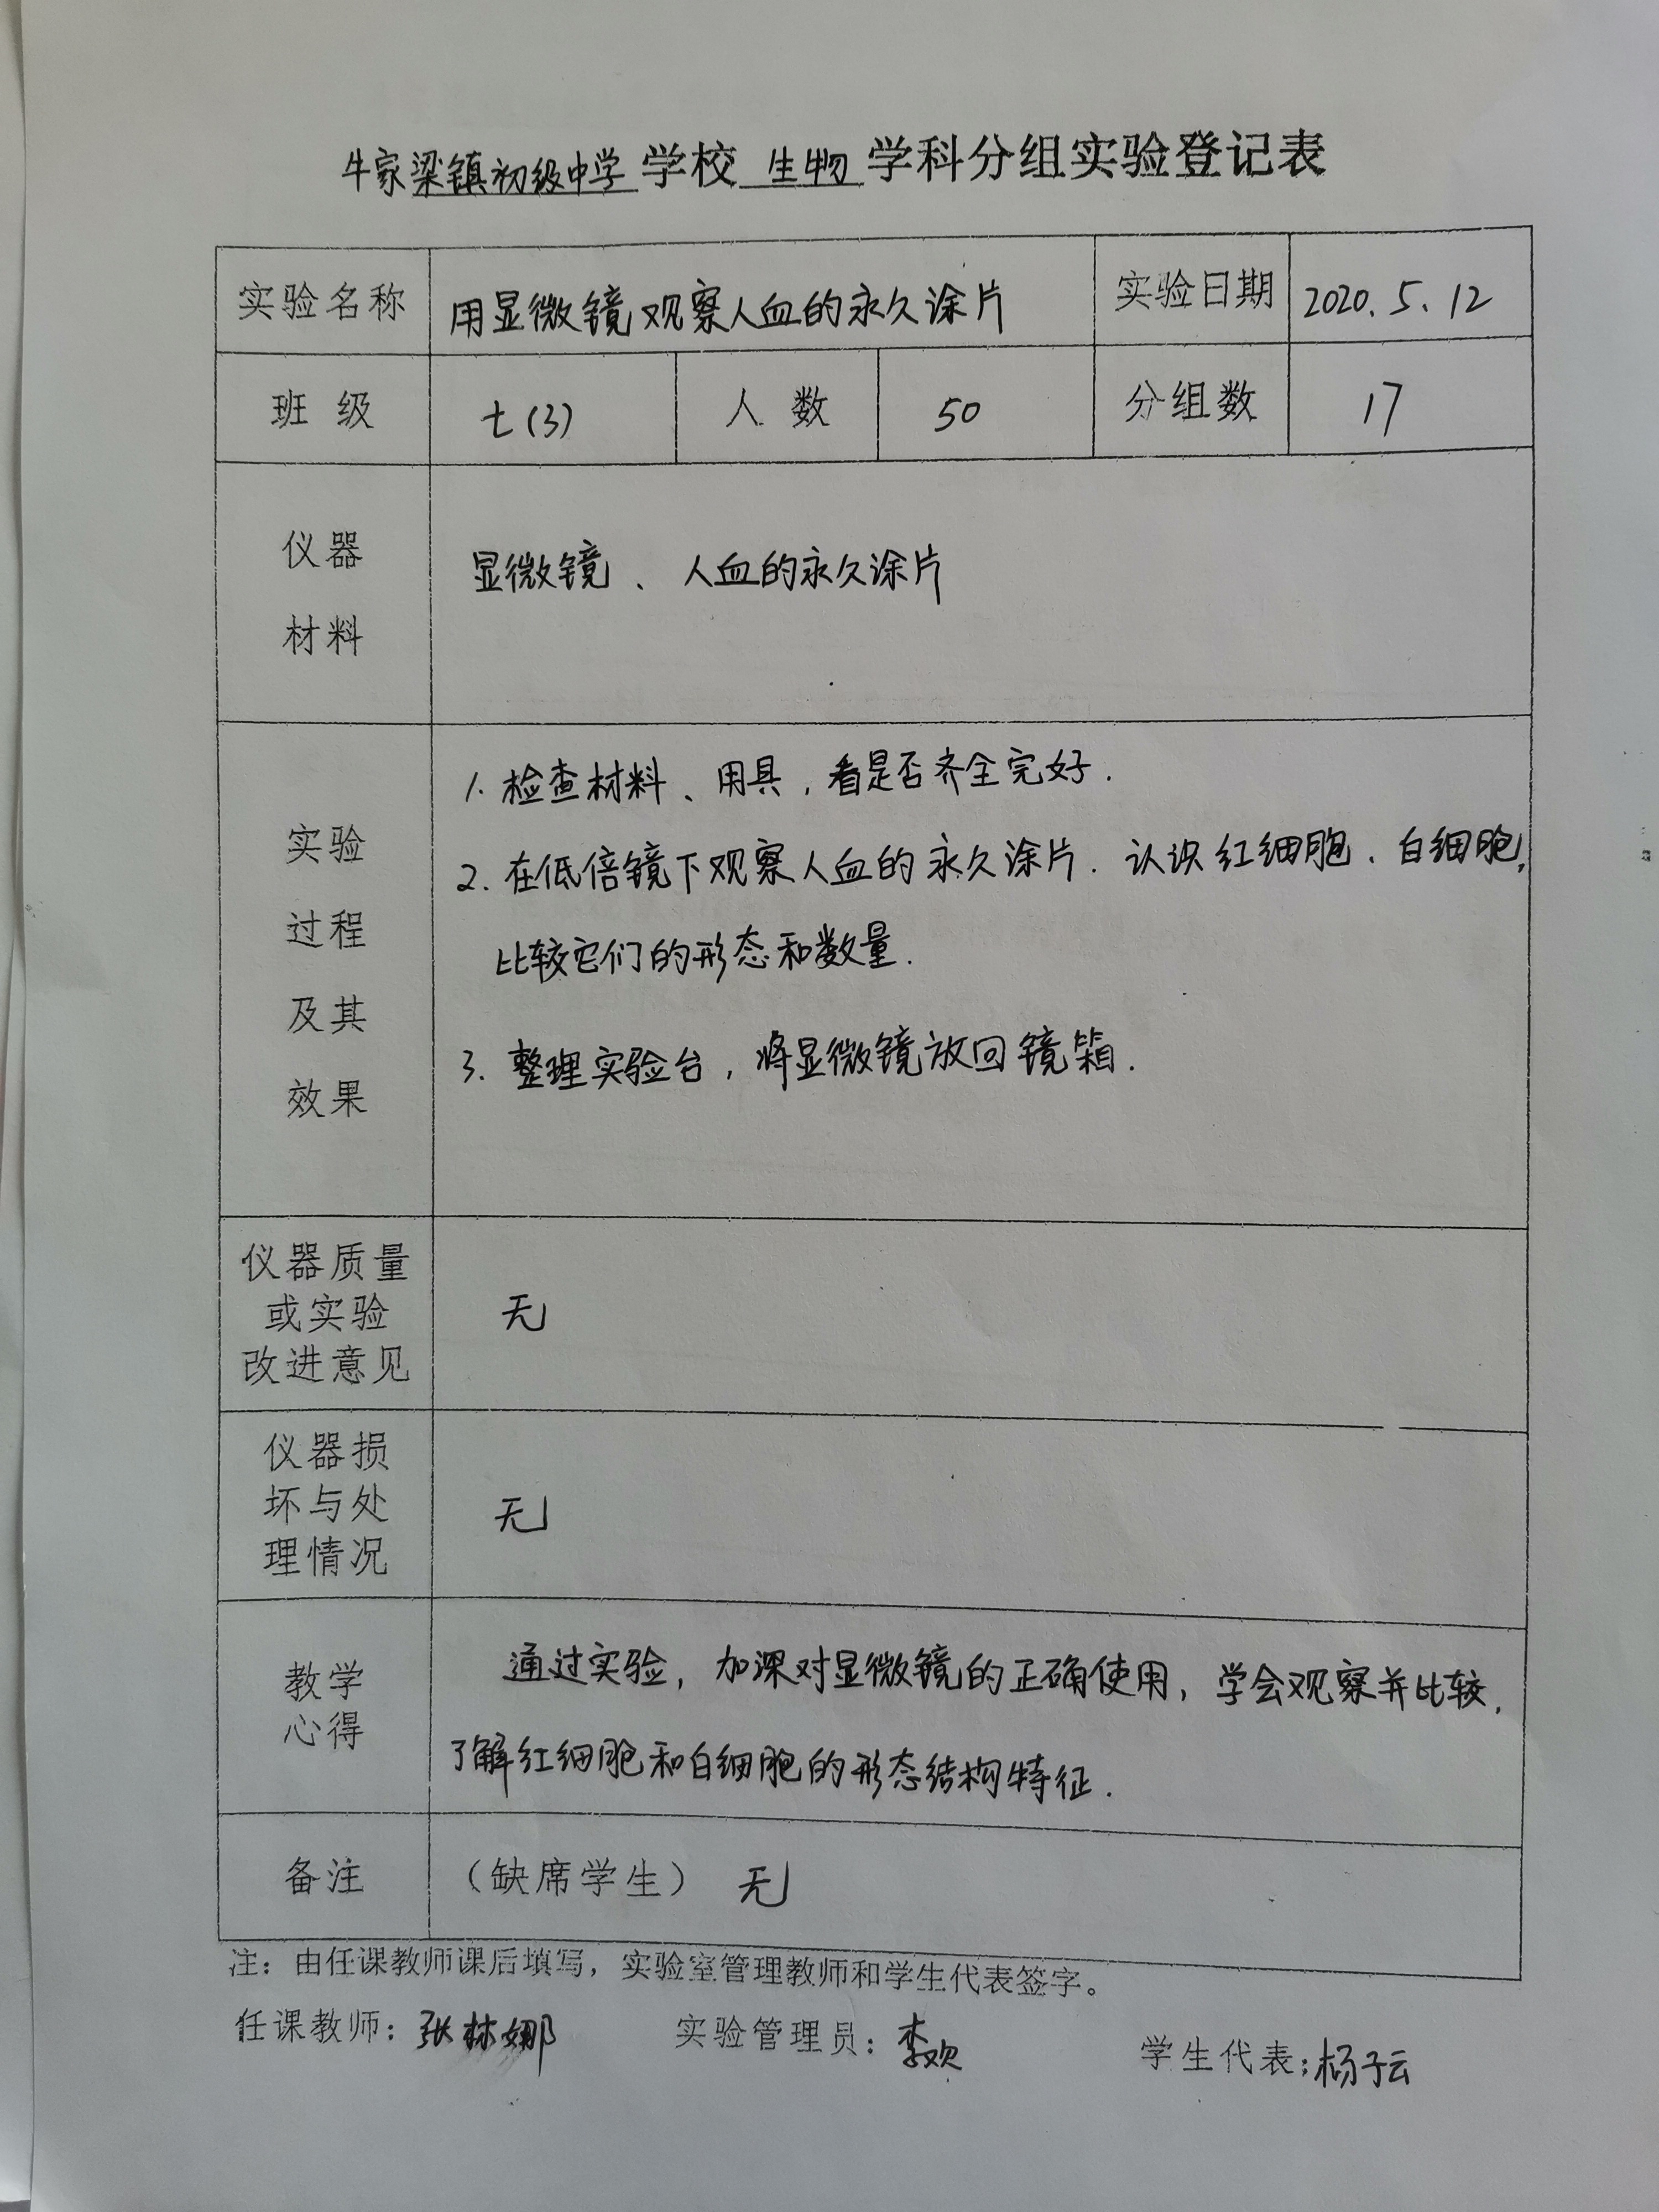 牛家梁镇初级中学 学校 生物 学科分组实验登记表
实验名称 用显微镜观察人血的永久涂片 实验日期 2020.5.12
班 级 七(3) 人 数 50 分组数 17
仪器
材料
显微镜、人血的永久涂片
实验
过程
及其
效果
1. 检查材料、用具,看是否齐全完好.
2. 在低倍镜下观察人血的永久涂片. 认识红细胞、白细胞,
比较它们的形态和数量.
3. 整理实验台,将显微镜放回镜箱.
仪器质量
或实验
改进意见
无
仪器损
坏与处
理情况
无
教学
心得
通过实验,加深对显微镜的正确使用,学会观察并比较,
了解红细胞和白细胞的形态结构特征.
备注 (缺席学生) 无
注:由任课教师课后填写,实验室管理教师和学生代表签字。
任课教师:张林娜 实验管理员:李欢 学生代表:杨子云